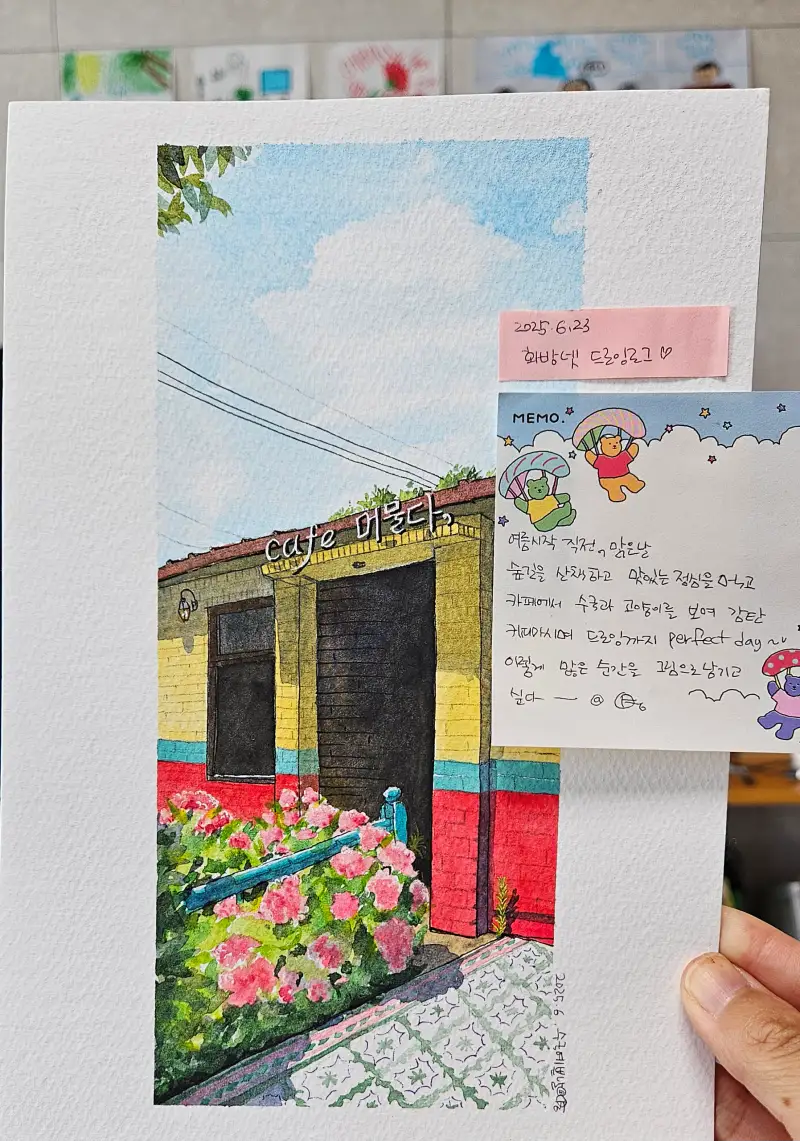 cafe 머물다,
2025.6.23
화방넷 드로잉로그♡
MEMO.
여름시작 직전, 맑은날
숲길을 산책하고 맛있는 점심을 먹고
카페에서 수국과 고양이를 보며 감탄
커피마시며 드로잉까지 perfect day~
이렇게 맑은 순간을 그림으로 남기고
싶다 — @
2025.6.